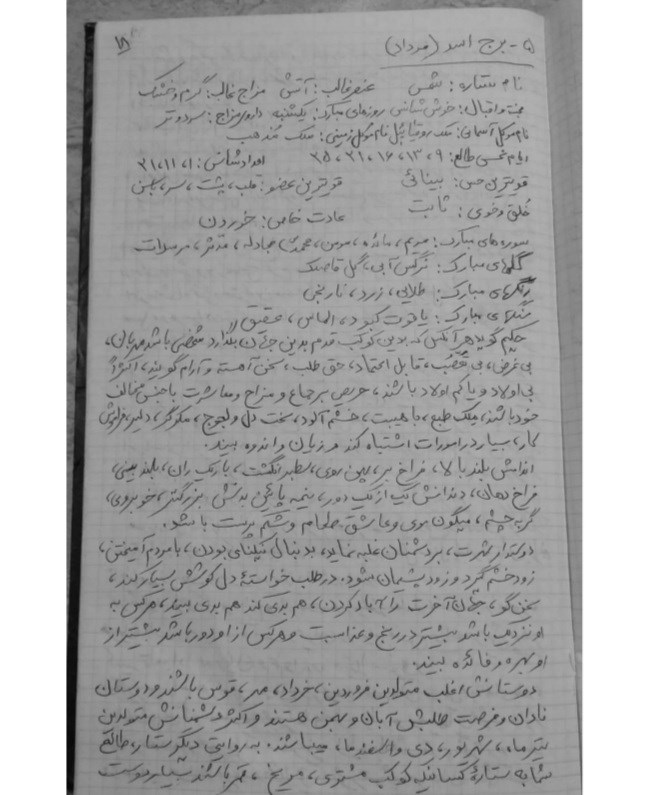 ۱۸
۵- برج اسد (مرداد)
نام ستاره: شمس عنصر غالب: آتش مزاج غالب: گرم و خشک
بخت و اقبال: خوش شانس روزهای مبارک: یکشنبه داروی مزاج: سرد و تر
نام موکل آسمانی: ملک روقیائیل نام موکل زمینی: ملک مُذهب
ایام نحسی طالع: ۹، ۱۳، ۱۶، ۲۱، ۲۵ اعداد شانس: ۱، ۱۱، ۲۱
قویترین حس: بینائی قویترین عضو: قلب، پشت، سر،
خُلق و خوی: ثابت عادت خاص: خوردن
سوره های مبارک: مریم، مائده، مومن، محمدؐ، مجادله، مدثر، مرسلات
گلهای مبارک: نرگس آبی، گل قاصدک
رنگهای مبارک: طلایی، زرد، نارنجی
سنگهای مبارک: یاقوت کبود، الماس، عقیق
حکیم گوید هر آنکس که بدین کوکب قدم بدین جهان بگذارد شخصی باشد مهربان،
بی غرض، بی تعصّب، قابل اعتماد، حق طلب، سخن آهسته و آرام گوید، اکثراً
بی اولاد و یا کم اولاد باشند، حریص بر جماع و مزاح و معاشرت با جنس مخالف
خود باشند، ملک طبع، با هیبت، خشم آلود، سخت دل و لجوج، مکرگر، دلیر،
کار، بسیار در امورات اشتباه کند و زیان و اندوه بیند.
اندامش بلند بالا، فراخ بر، پهن روی، سطبر انگشت، باریک ران، بلند بینی،
فراخ دهان، دندانش یک از یک دور، نیمه پائین بدنش بزرگتر، خوبروی،
گربه چشم، میگون موی و عاشق طعام و شکم پرست باشد.
دوستدار شهرت، بر دشمنان غلبه نماید، بدنبال نیکنامی بودن، با مردم آمیختن،
زود خشم گیرد و زود پشیمان شود. در طلب خواستهٔ دل کوشش بسیار کند،
سخن گو، جهان آخرت را آباد کردن، هم بدی کند هم بدی بیند، هر کس به
او نزدیک باشد بیشتر در رنج و عذابست و هر کس از او دور باشد بیشتر از
او بهره و فائده بیند.
دوستانش اغلب متولدین فروردین، خرداد، مهر، قوس باشند و دوستان
نادان و فرصت طلبش آبان و بهمن هستند و اکثر دشمنانش متولدین
تیر ماه، شهریور، دی و اسفند ماه، میباشد. به روایتی دیگر ستاره طالع
شما به ستارهٔ کسانیکه کوکب مشتری، مریخ، قمر باشند بسیار دوست